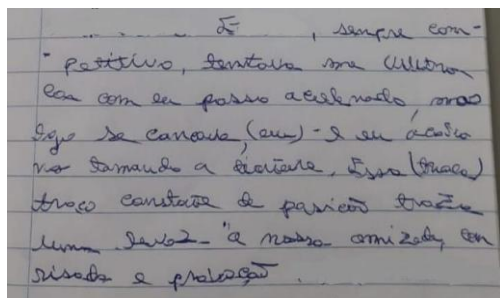 E , sempre com-
petitivo, tentava me
com eu passo acelerado, mas
logo se cansava, (eu) - e eu
tomando a dianteira, Essa (troca)
troca constante de posição trazia
uma a nossa amizade, con
risada e provocação